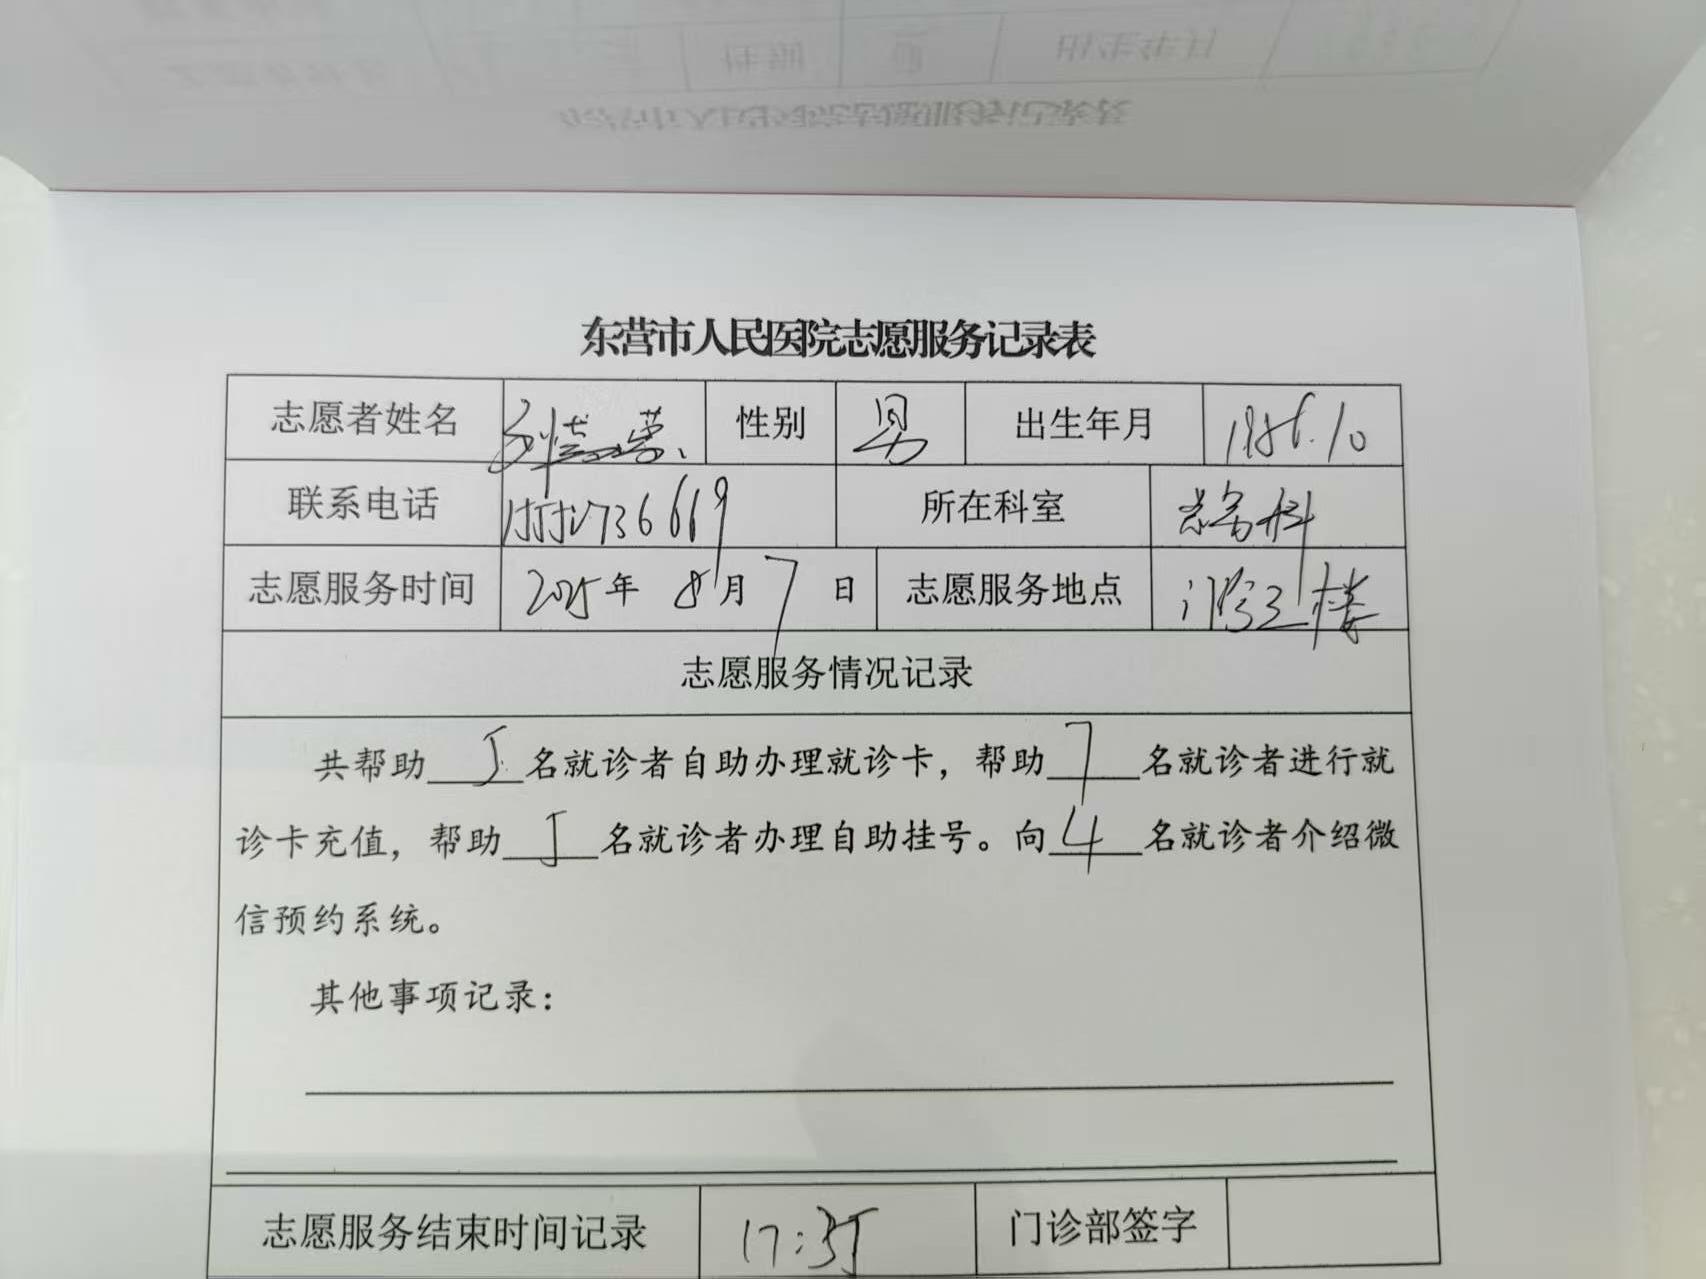 东营市人民医院志愿服务记录表
志愿者姓名 性别 男 出生年月 1986.10
联系电话 所在科室 总务科
志愿服务时间 2025年 8月 7 日 志愿服务地点 门诊三楼
志愿服务情况记录
共帮助 5 名就诊者自助办理就诊卡，帮助 7 名就诊者进行就
诊卡充值，帮助 5 名就诊者办理自助挂号。向 4 名就诊者介绍微
信预约系统。
其他事项记录：
志愿服务结束时间记录 17:35 门诊部签字